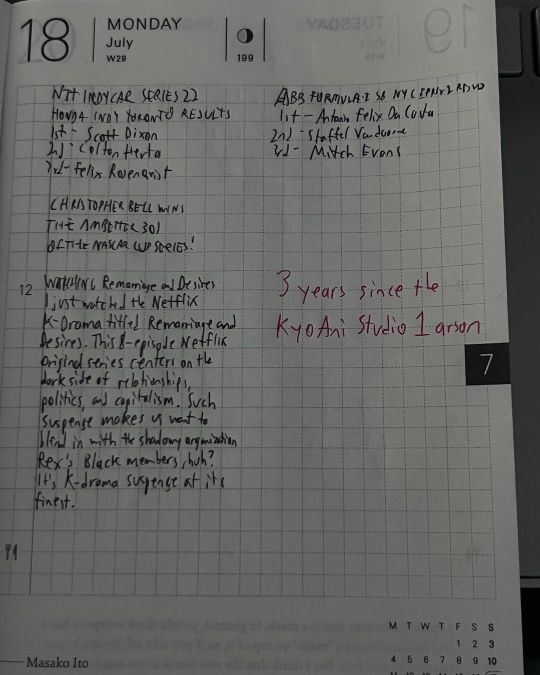 18
MONDAY
July
W29
199
NTT INDYCAR SERIES 22
HONDA INDY TORONTO RESULTS
1st - Scott Dixon
2nd - Colton Herta
3rd - Felix Rosenqvist
CHRISTOPHER BELL WINS
THE AMBETTER 301
OF THE NASCAR CUP SERIES!
ABB FORMULA E S8 NYC EPRIX 2
1st - Antonio Felix Da Costa
2nd - Stoffel Vandoorne
3rd - Mitch Evans
12
WATCHING Remarriage and Desires
I just watched the Netflix
K-Drama titled Remarriage and
Desires. This 8-episode Netflix
original series centers on the
dark side of relationships,
politics, and capitalism. Such
suspense makes us want to
blend in with the shadowy organization
Rex's Black members, huh?
It's K-drama suspense at its
finest.
3 years since the
KyoAni Studio 1 arson
7
M T W T F S S
1 2 3
4 5 6 7 8 9 10
Masako Ito